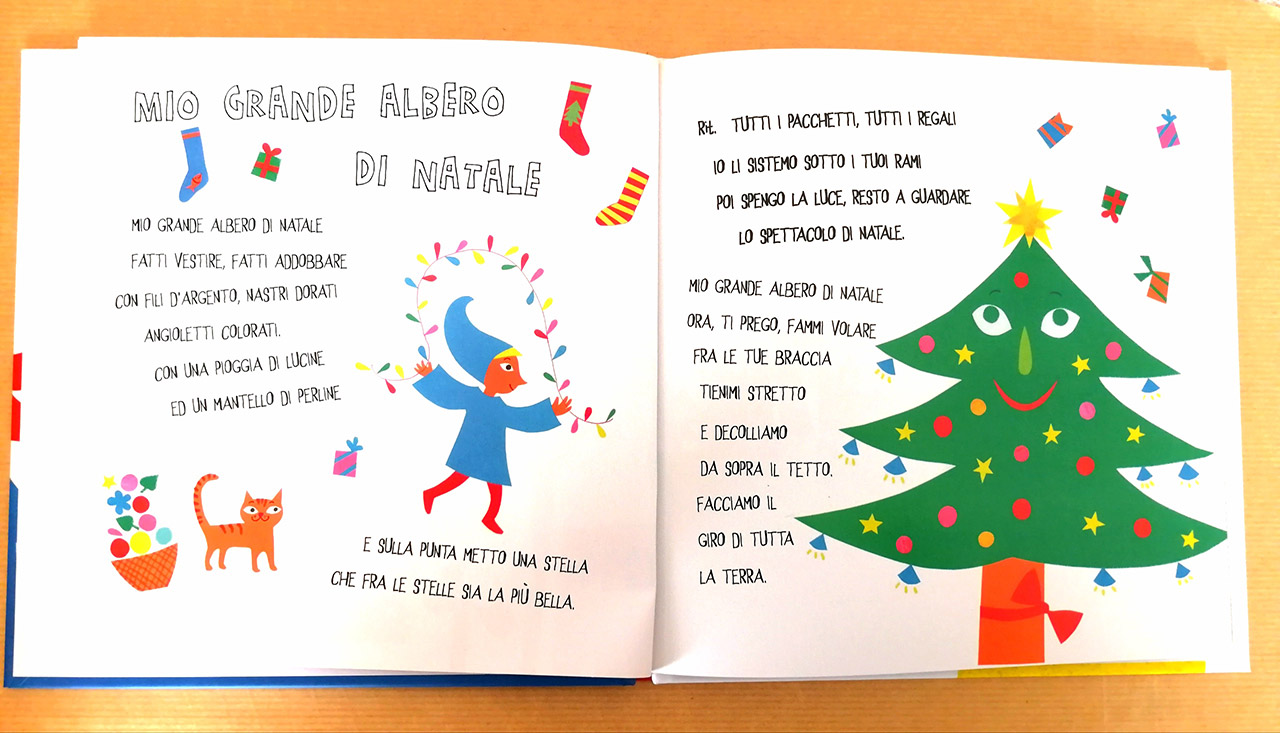 MIO GRANDE ALBERO
DI NATALE
MIO GRANDE ALBERO DI NATALE
FATTI VESTIRE, FATTI ADDOBBARE
CON FILI D'ARGENTO, NASTRI DORATI
ANGIOLETTI COLORATI.
CON UNA PIOGGIA DI LUCINE
ED UN MANTELLO DI PERLINE
E SULLA PUNTA METTO UNA STELLA
CHE FRA LE STELLE SIA LA PIÙ BELLA.
Rit. TUTTI I PACCHETTI, TUTTI I REGALI
IO LI SISTEMO SOTTO I TUOI RAMI
POI SPENGO LA LUCE, RESTO A GUARDARE
LO SPETTACOLO DI NATALE.
MIO GRANDE ALBERO DI NATALE
ORA, TI PREGO, FAMMI VOLARE
FRA LE TUE BRACCIA
TIENIMI STRETTO
E DECOLLIAMO
DA SOPRA IL TETTO.
FACCIAMO IL
GIRO DI TUTTA
LA TERRA.